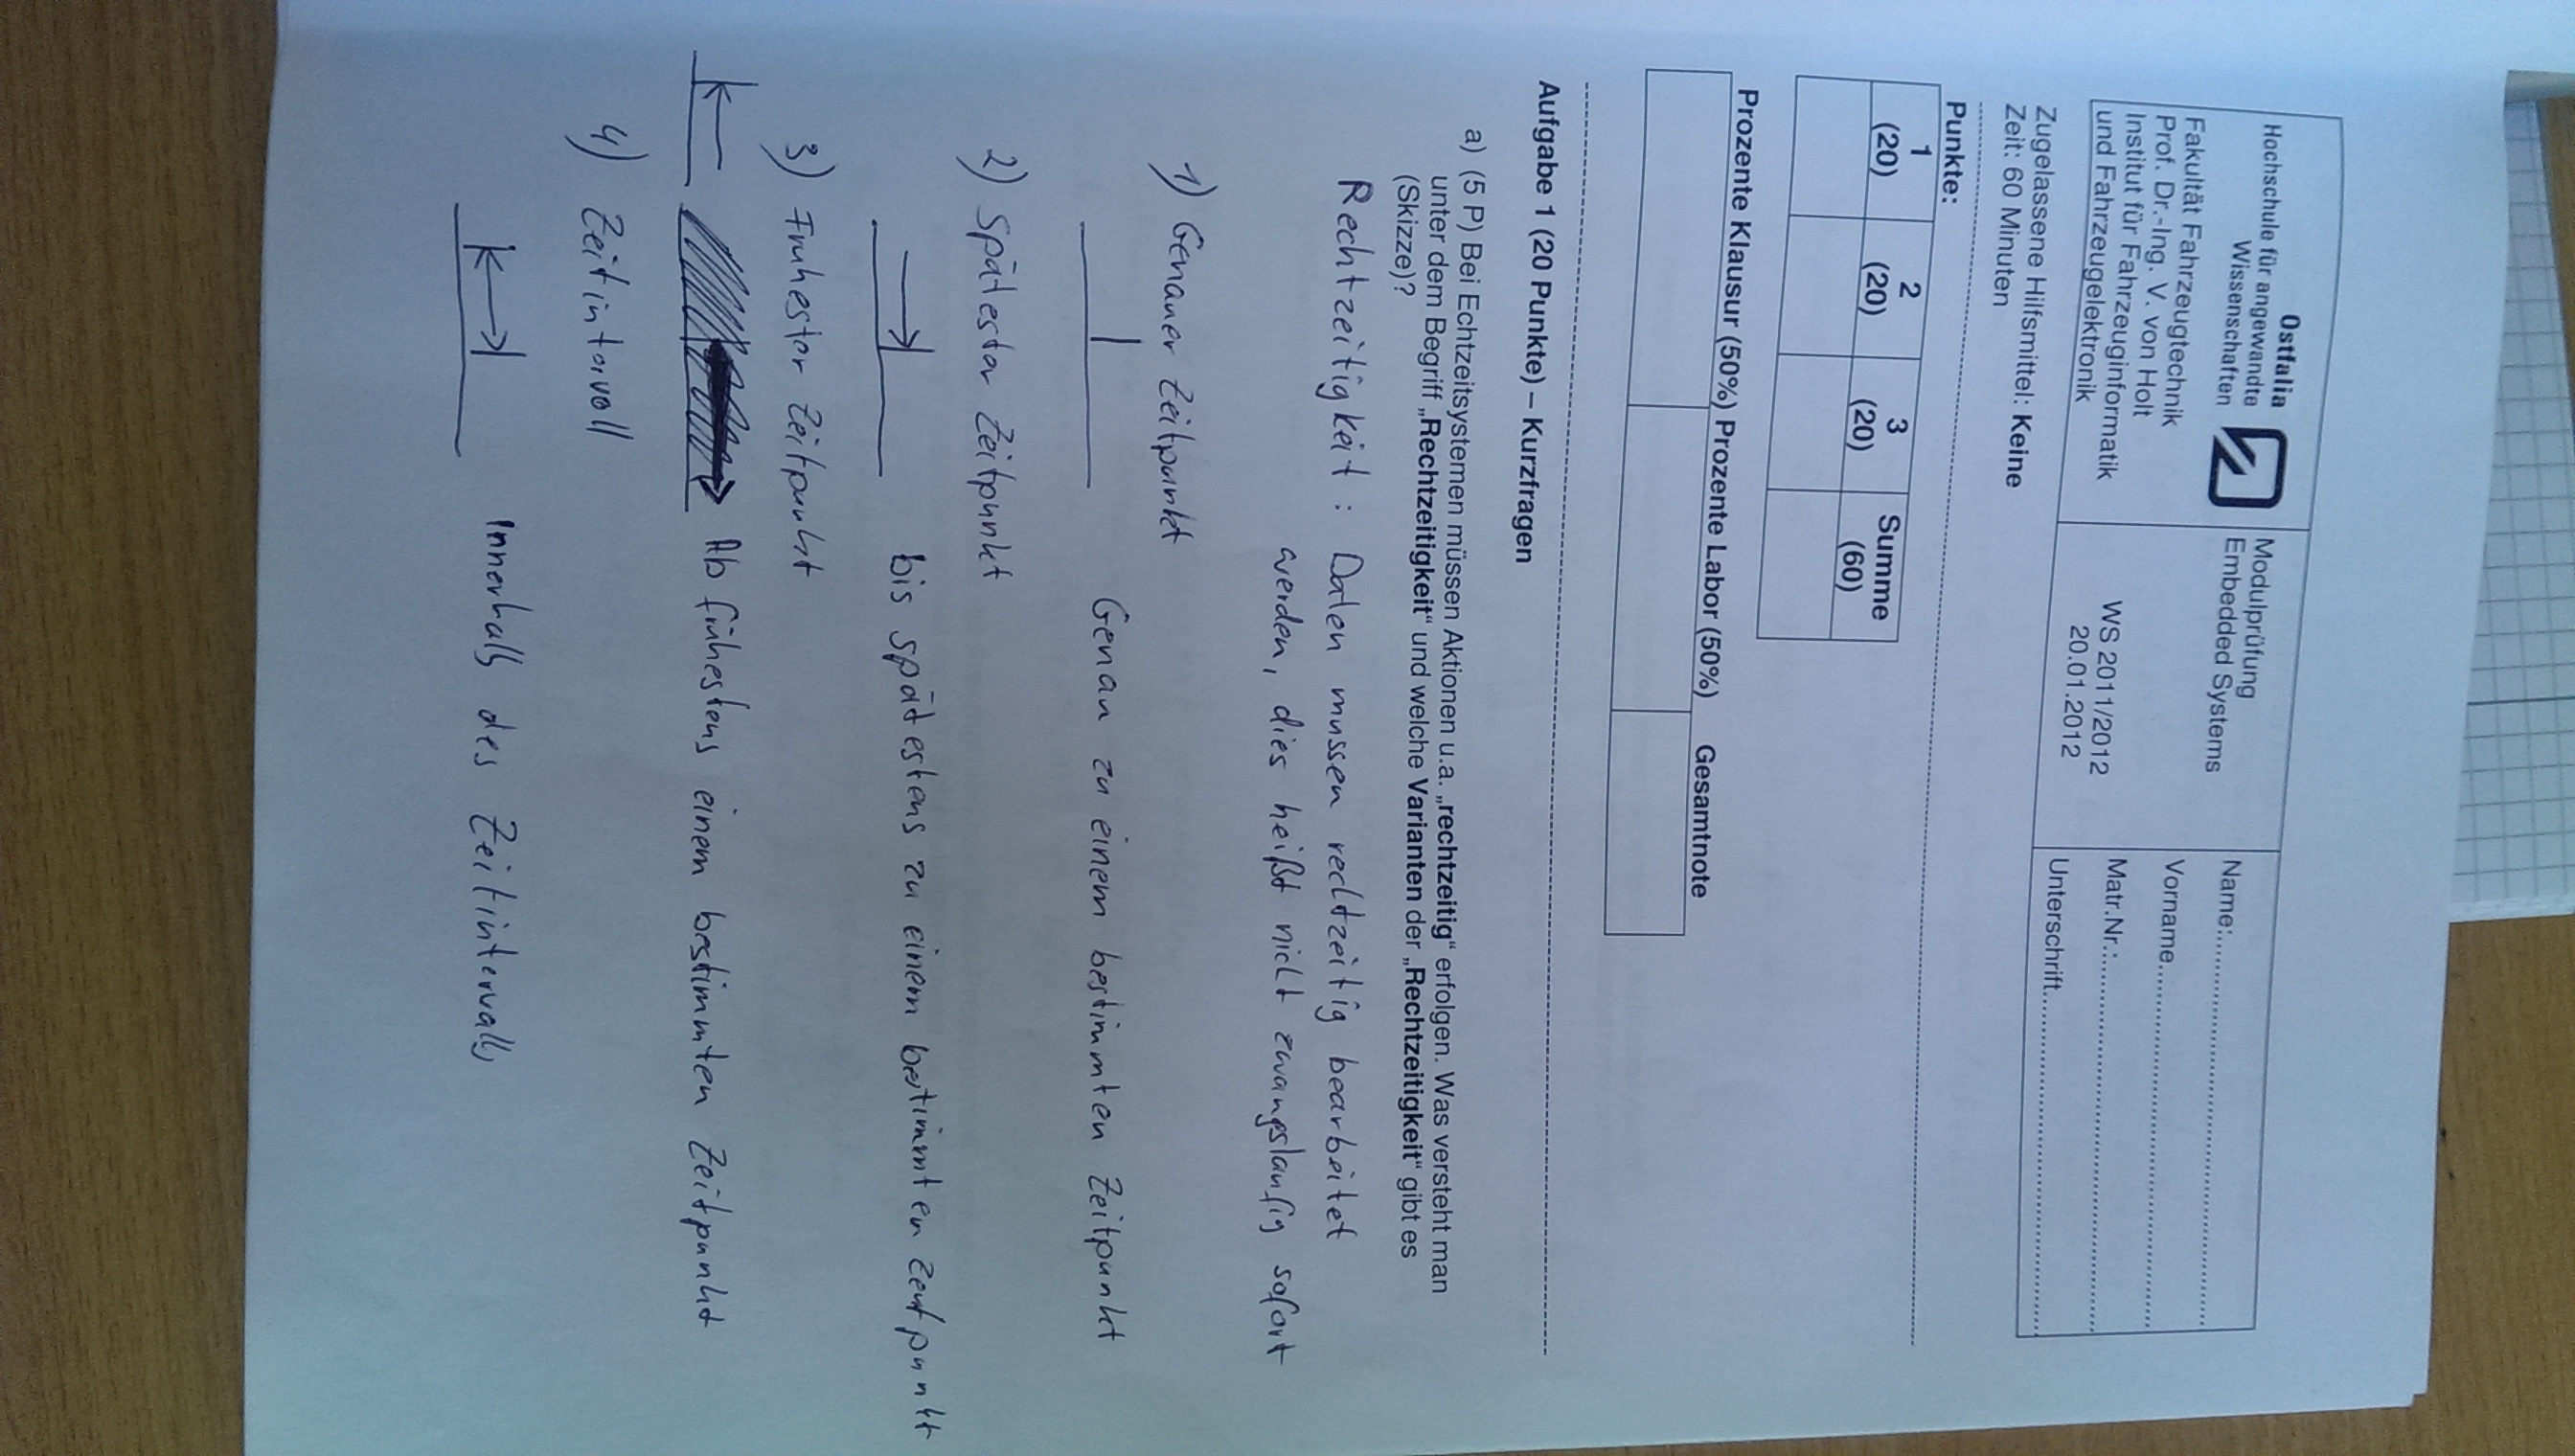 Ostfalia
Hochschule für angewandte
Wissenschaften
Fakultät Fahrzeugtechnik
Prof. Dr.-Ing. V. von Holt
Institut für Fahrzeuginformatik
und Fahrzeugelektronik
Modulprüfung
Embedded Systems
WS 2011/2012
20.01.2012
Name:
Vorname
Matr.Nr.:
Unterschrift
Zugelassene Hilfsmittel: Keine
Zeit: 60 Minuten
Punkte:
1 2 3 Summe
(20) (20) (20) (60)
Prozente Klausur (50%) Prozente Labor (50%) Gesamtnote
Aufgabe 1 (20 Punkte) – Kurzfragen
a) (5 P) Bei Echtzeitsystemen müssen Aktionen u.a. „rechtzeitig“ erfolgen. Was versteht man
unter dem Begriff „Rechtzeitigkeit“ und welche Varianten der „Rechtzeitigkeit“ gibt es
(Skizze)?
Rechtzeitigkeit : Daten mussen rechtzeitig bearbeitet
werden, dies heißt nicht zwangslaufig sofort
1) Genauer Zeitpunkt
Genau zu einem bestimmten Zeitpunkt
2) Spätester Zeitpunkt
bis spätestens zu einem bestimmten Zeitpunkt
3) Fruhester Zeitpunkt
Ab frühestens einem bestimmten Zeitpunkt
4) Zeitintervall
Innerhalb des Zeitintervalls